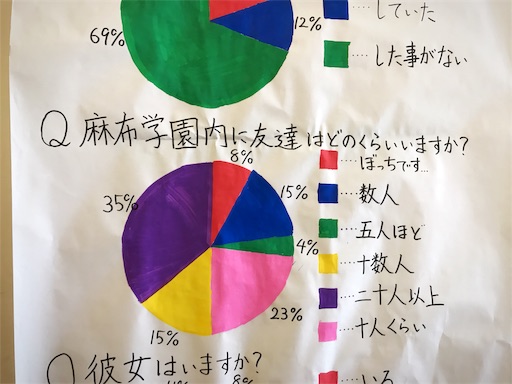 …していた
12%
69%
…した事がない
Q 麻布学園内に友達はどのくらいいますか?
8%
…ぼっちです…
35%
15%
…数人
…五人ほど
4%
…十数人
…二十人以上
23%
…十人くらい
15%
Q 彼女はいますか?
8%
…いる